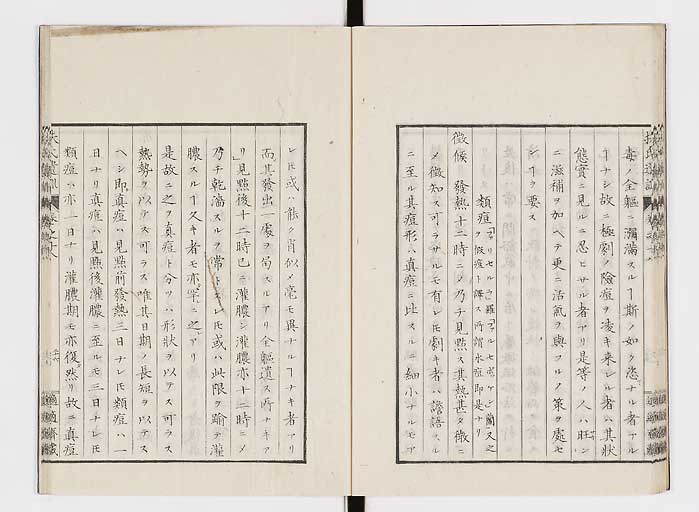 毒ノ全軀ニ瀰滿スルヿ斯ノ如ク恣ナル者アル
ヿナシ故ニ極劇ノ險痘ヲ凌キ来レル者ハ其狀
態實ニ見ルニ忍ヒサル者アリ是等ノ人ハ旺ン
ニ滋補ヲ加ヘテ更ニ活氣ヲ與フルノ策ヲ處セ
ンヿヲ要ス
類痘
ヲ假痘ト譯ス所謂水痘即是ナリ
徴候 發熱十二時ニメ乃チ見點ス其熱甚タ微ニ
メ徴知ス可ラサルモ有レ𪜈劇キ者ハ譫語スル
ニ至ル其痘形ハ真痘ニ比スルニ細小ナルモア
レ𪜈或ハ能ク肖似メ毫モ異ナルヿナキ者アリ
而其發出一處ヲ局スルアリ全軀遺ス所ナキア
リ見點後十二時已ニ灌膿シ灌膿亦十二時ニメ
乃チ乾濇スルヲ常トスレ𪜈或ハ此限ヲ踰テ灌
膿スルヿ久キ者モ亦罕ニ之アリ
是故ニ之ヲ真痘ト分ツハ形狀ヲ以テス可ラス
熱勢ヲ以テス可ラス唯其日期ノ長短ヲ以テス
ヘシ即真痘ハ見點前發熱三日ナレ𪜈類痘ハ一
日ナリ真痘ハ見點後灌膿ニ至ルモ三日ナレ𪜈
類痘ハ亦一日ナリ灌膿期モ亦復然リ故ニ真痘